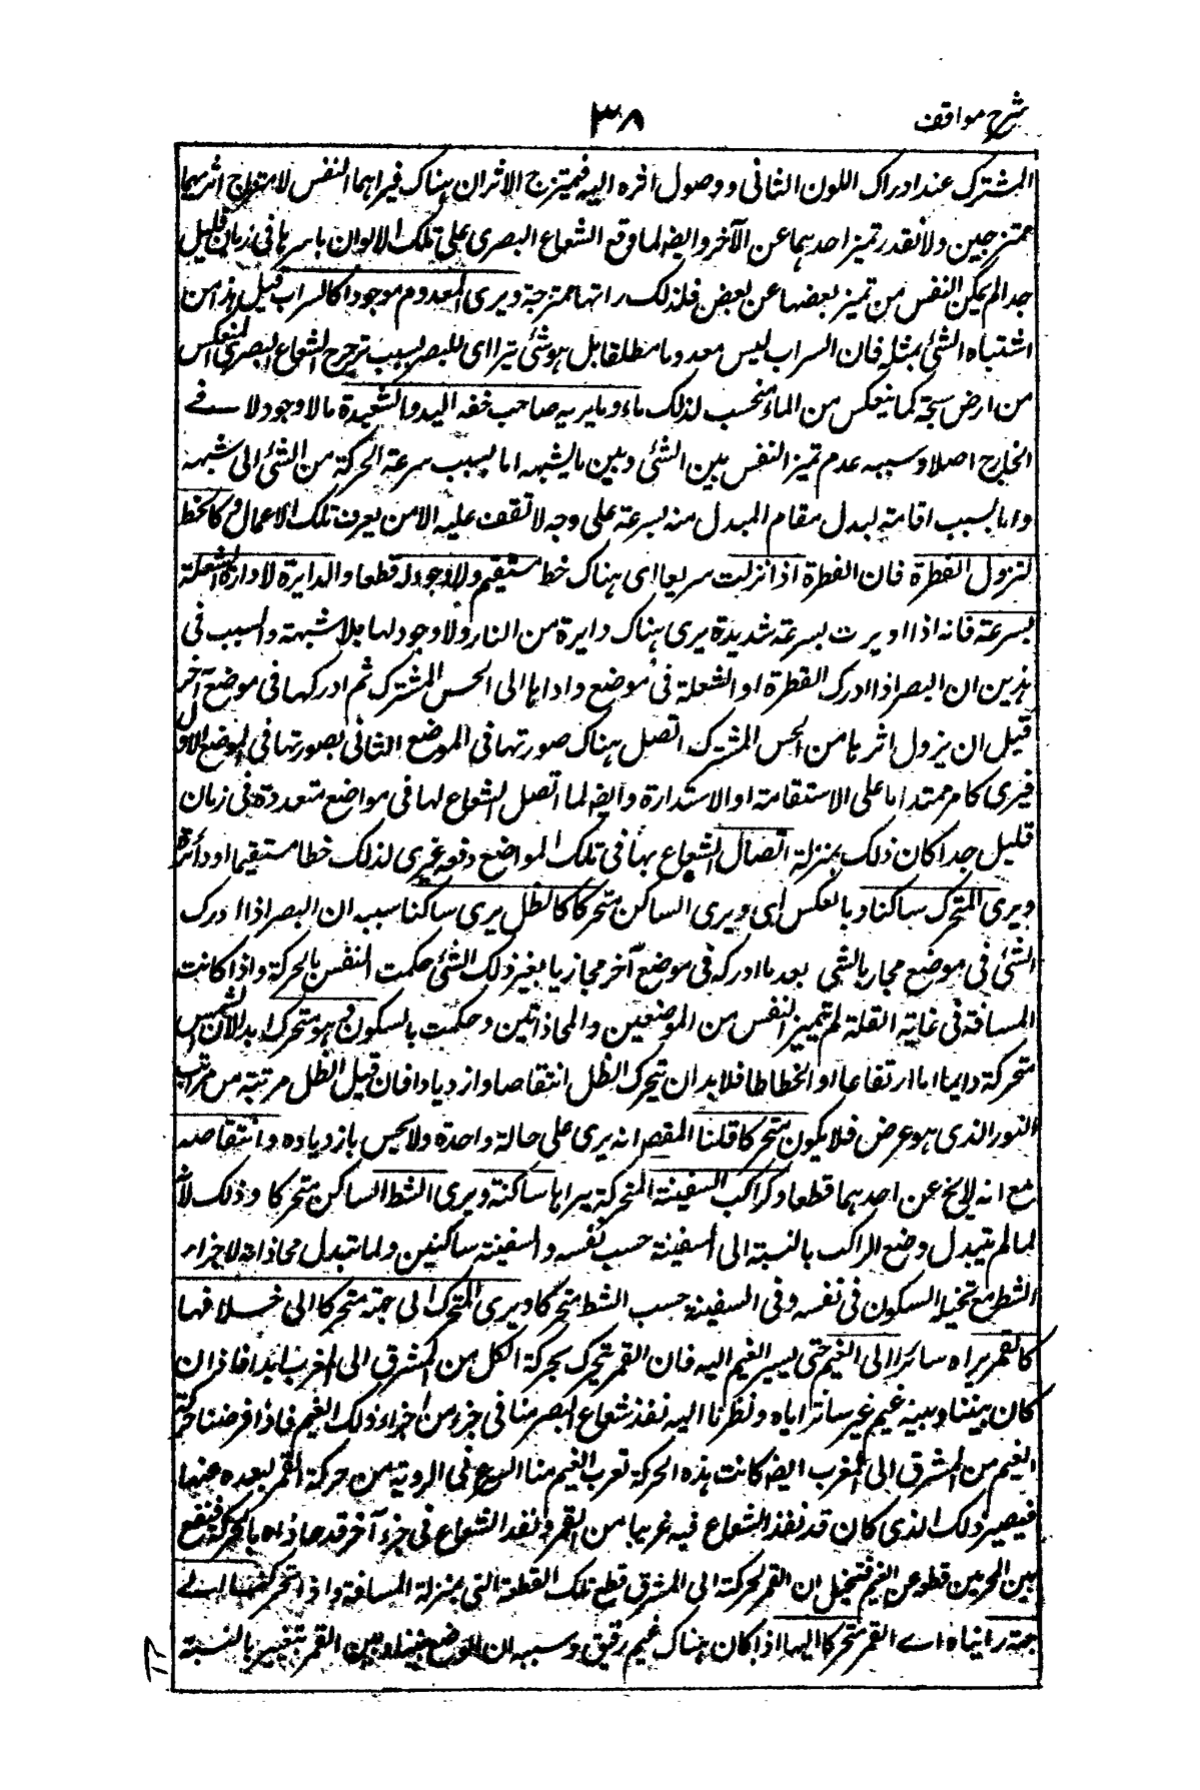 شرح مواقف
٣٨
المشترك عند ادراك اللون الثانى ووصول اثره اليه فيمتزج الاثران هناك فيراهما النفس لامتزاج أثريهما
ممتزجين ولا تقدر تميز احدهما عن الآخر وايضا لما وقع الشعاع البصرى على تلك الالوان باسرها فى زمان قليل
جدا لم يمكن النفس من تميز بعضها عن بعض فلذلك راتها ممتزجة ويرى المعدوم موجودا كالسراب قيل هذا من
اشتباه الشئ بمثله فان السراب ليس معدوما مطلقا بل هو شئ يترااى للبصر بسبب ترجرج الشعاع البصرى المنعكس
من ارض سبخة كما ينعكس من الماء فيحسب لذلك ماء وما يريه صاحب خفه اليد والشعبدة مالا وجود له فى
الخارج اصلا وسببه عدم تميز النفس بين الشئ وبين ما يشبهه اما بسبب سرعة الحركة من الشئ الى شبهه
واما بسبب اقامة البدل مقام المبدل منه بسرعة على وجه لا تقف عليه الا من يعرف تلك الاعمال وكالخط
لنزول القطرة فان القطرة اذا نزلت سريعا اى هناك خط مستقيم ولا وجود له قطعا والدايرة لادارة الشعلة
بسرعة فانه اذا اديرت بسرعة شديدة يرى هناك دايرة من النار ولا وجود لها بلا شبهة والسبب فى
هذين ان البصر اذا ادرك القطرة او الشعلة فى موضع واداها الى الحس المشترك ثم ادركها فى موضع آخر
قبل ان يزول اثرها من الحس المشترك اتصل هناك صورتها فى الموضع الثانى بصورتها فى الموضع الاول
فيرى كامر ممتد اما على الاستقامة او الاستدارة وايضا لما اتصل الشعاع لها فى مواضع متعددة فى زمان
قليل جدا كان ذلك بمنزلة اتصال الشعاع بها فى تلك المواضع دفعة فيرى لذلك خطا مستقيما او دائرة
ويرى المتحرك ساكنا وبالعكس اى ويرى الساكن متحركا كالظل يرى ساكنا سببه ان البصر اذا ادرك
الشئ فى موضع محاذيا لشئ بعد ما ادركه فى موضع آخر محاذيا بغير ذلك الشئ حكمت النفس بالحركة واذا كانت
المسافة فى غاية القلة لم تميز النفس من الموضعين والمحاذاتين وحكمت بالسكون وهو متحرك ابدا لان الشمس
متحركة دايما اما ارتفاعا او انحطاطا فلا بد ان يتحرك الظل انتقاصا وازديادا فان قيل الظل مرتبة من مراتب
النور الذى هو عرض فلا يكون متحركا قلنا المقصد انه يرى على حالة واحدة ولا يحس بازدياده وانتقاصه
مع انه لا يخ عن احدهما قطعا وكراكب السفينة المتحركة يراها ساكنة ويرى الشط الساكن متحركا وذلك لانه
لما لم يتبدل وضع الراكب بالنسبة الى السفينة حسب نفسه والسفينة ساكنين ولما تبدل محاذاته لاجزاء
الشط مع تخيله السكون فى نفسه وفى السفينة حسب الشط متحركا ويرى المتحرك الى جهة متحركا الى خلافها
كالقمر يراه سائرا الى الغيم حتى يسير الغيم اليه فان القمر يتحرك بحركة الكل من المشرق الى المغرب ابدا فاذا ان
كان بيننا وبينه غيم غير ساتر اياه ونظرنا اليه نفذ شعاع البصر منا فى جزء من اجزاء ذلك الغيم فاذا فرضنا حركة
الغيم من المشرق الى المغرب ايضا كانت هذه الحركة لقرب الغيم منا اسرع فى الروية من حركة القمر لبعده عنها
فيصير ذلك الذى كان قد نفذ الشعاع فيه غربيا من القمر ونفذ الشعاع فى جزء آخر قد حاذاه بالحركة فيقع
بين الجزئين قطعة عن الغيم فيتخيل ان القمر لحركة الى المشرق قطع تلك القطعة التى بمنزلة المسافة واذا تحركنا الى
جهة رايناه اى القمر متحركا اليها اذا كان هناك غيم رقيق وسببه ان الوضع بيننا وبين القمر يتغير بالنسبة